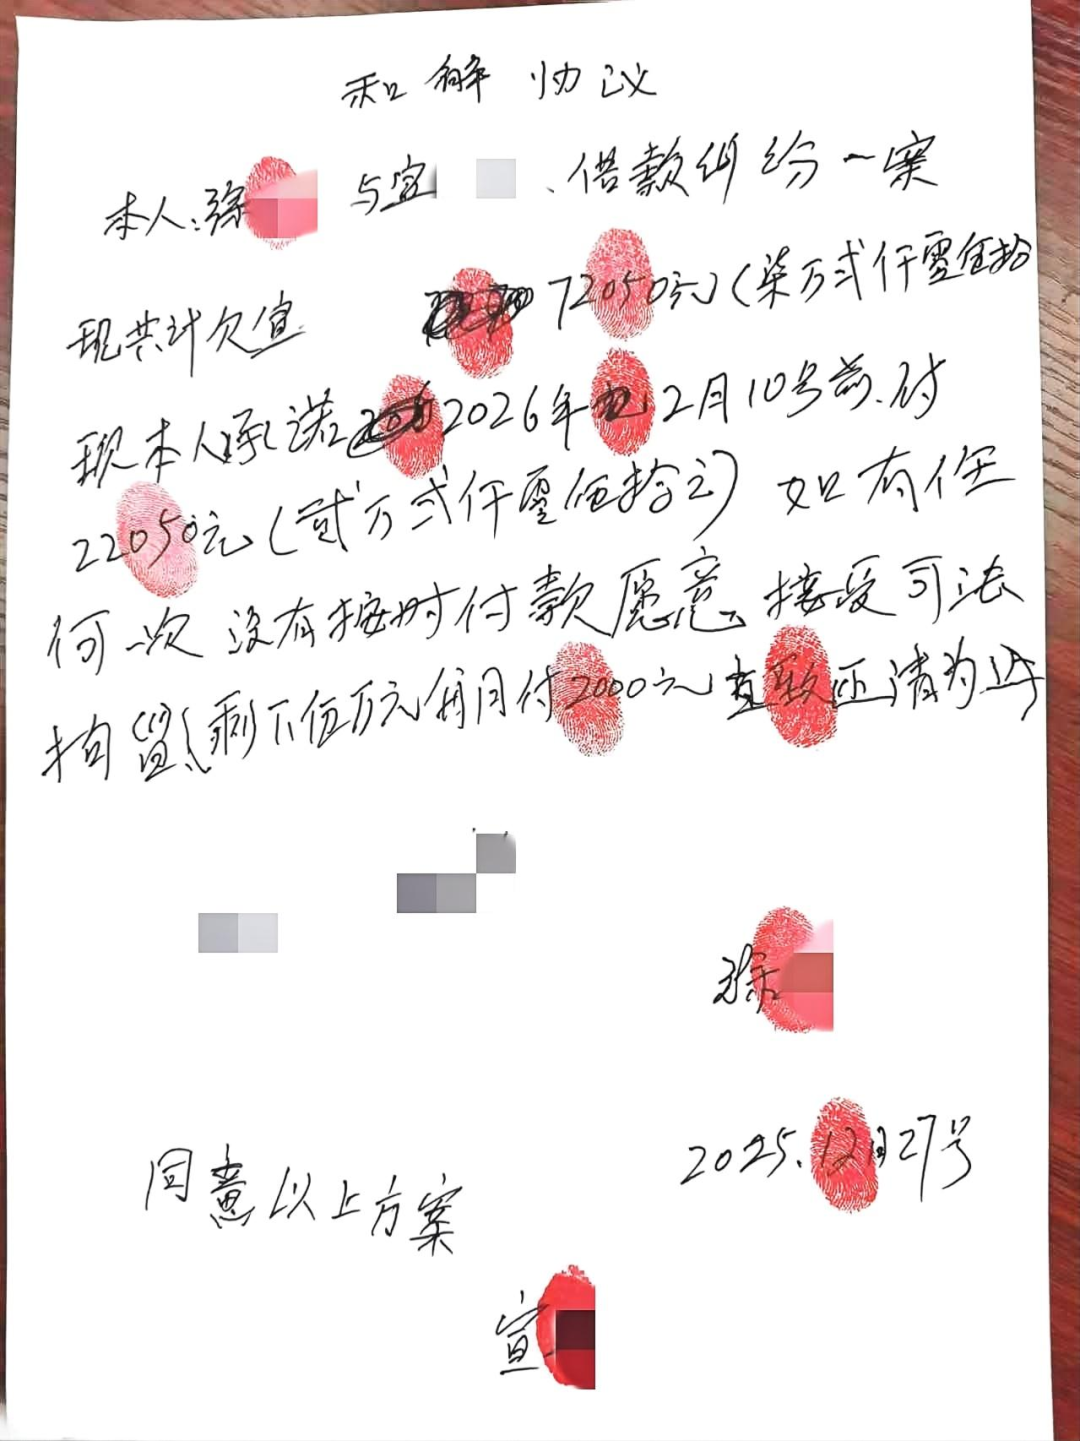 和解协议
本人:徐 与宣 、借款纠纷一案
现共计欠宣 72050元(柒万弍仟零伍拾
现本人承诺 2026年 2月10号前.付
22050元(贰万弍仟零伍拾元) 如有任
何一次没有按时付款愿意接受司法
拘留,剩下伍万元每月付2000元直致还清为止
徐
2025.12月27号
同意以上方案
宣